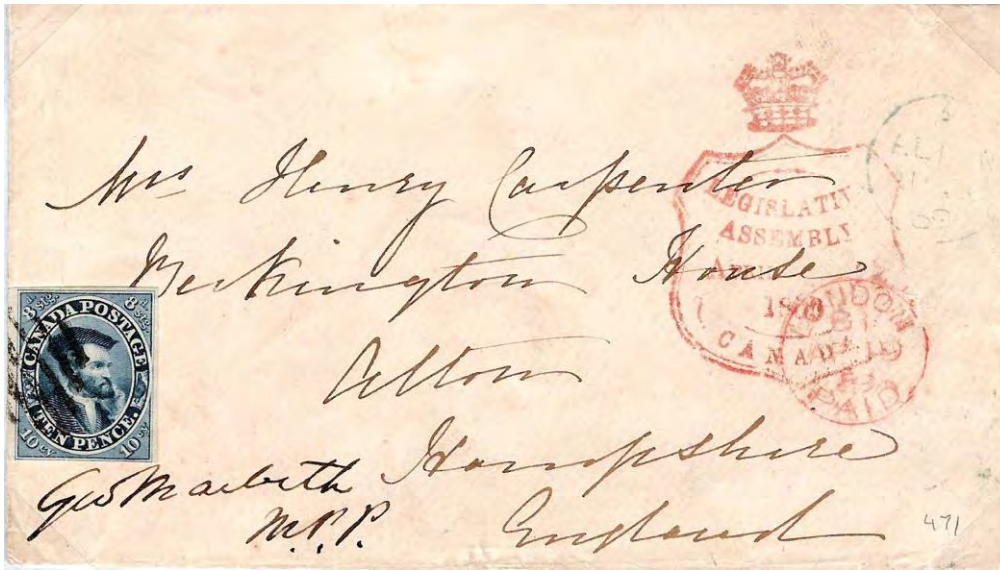 Mrs Henry Carpenter
Beckington House
Alton
Hampshire
England
Geo Macbeth
M.P.P.
8 stg. 8 stg.
CANADA POSTAGE
TEN PENCE.
10 cy. 10 cy.
LEGISLATIV
ASSEMBLY
CANADA
LONDON
PAID
471